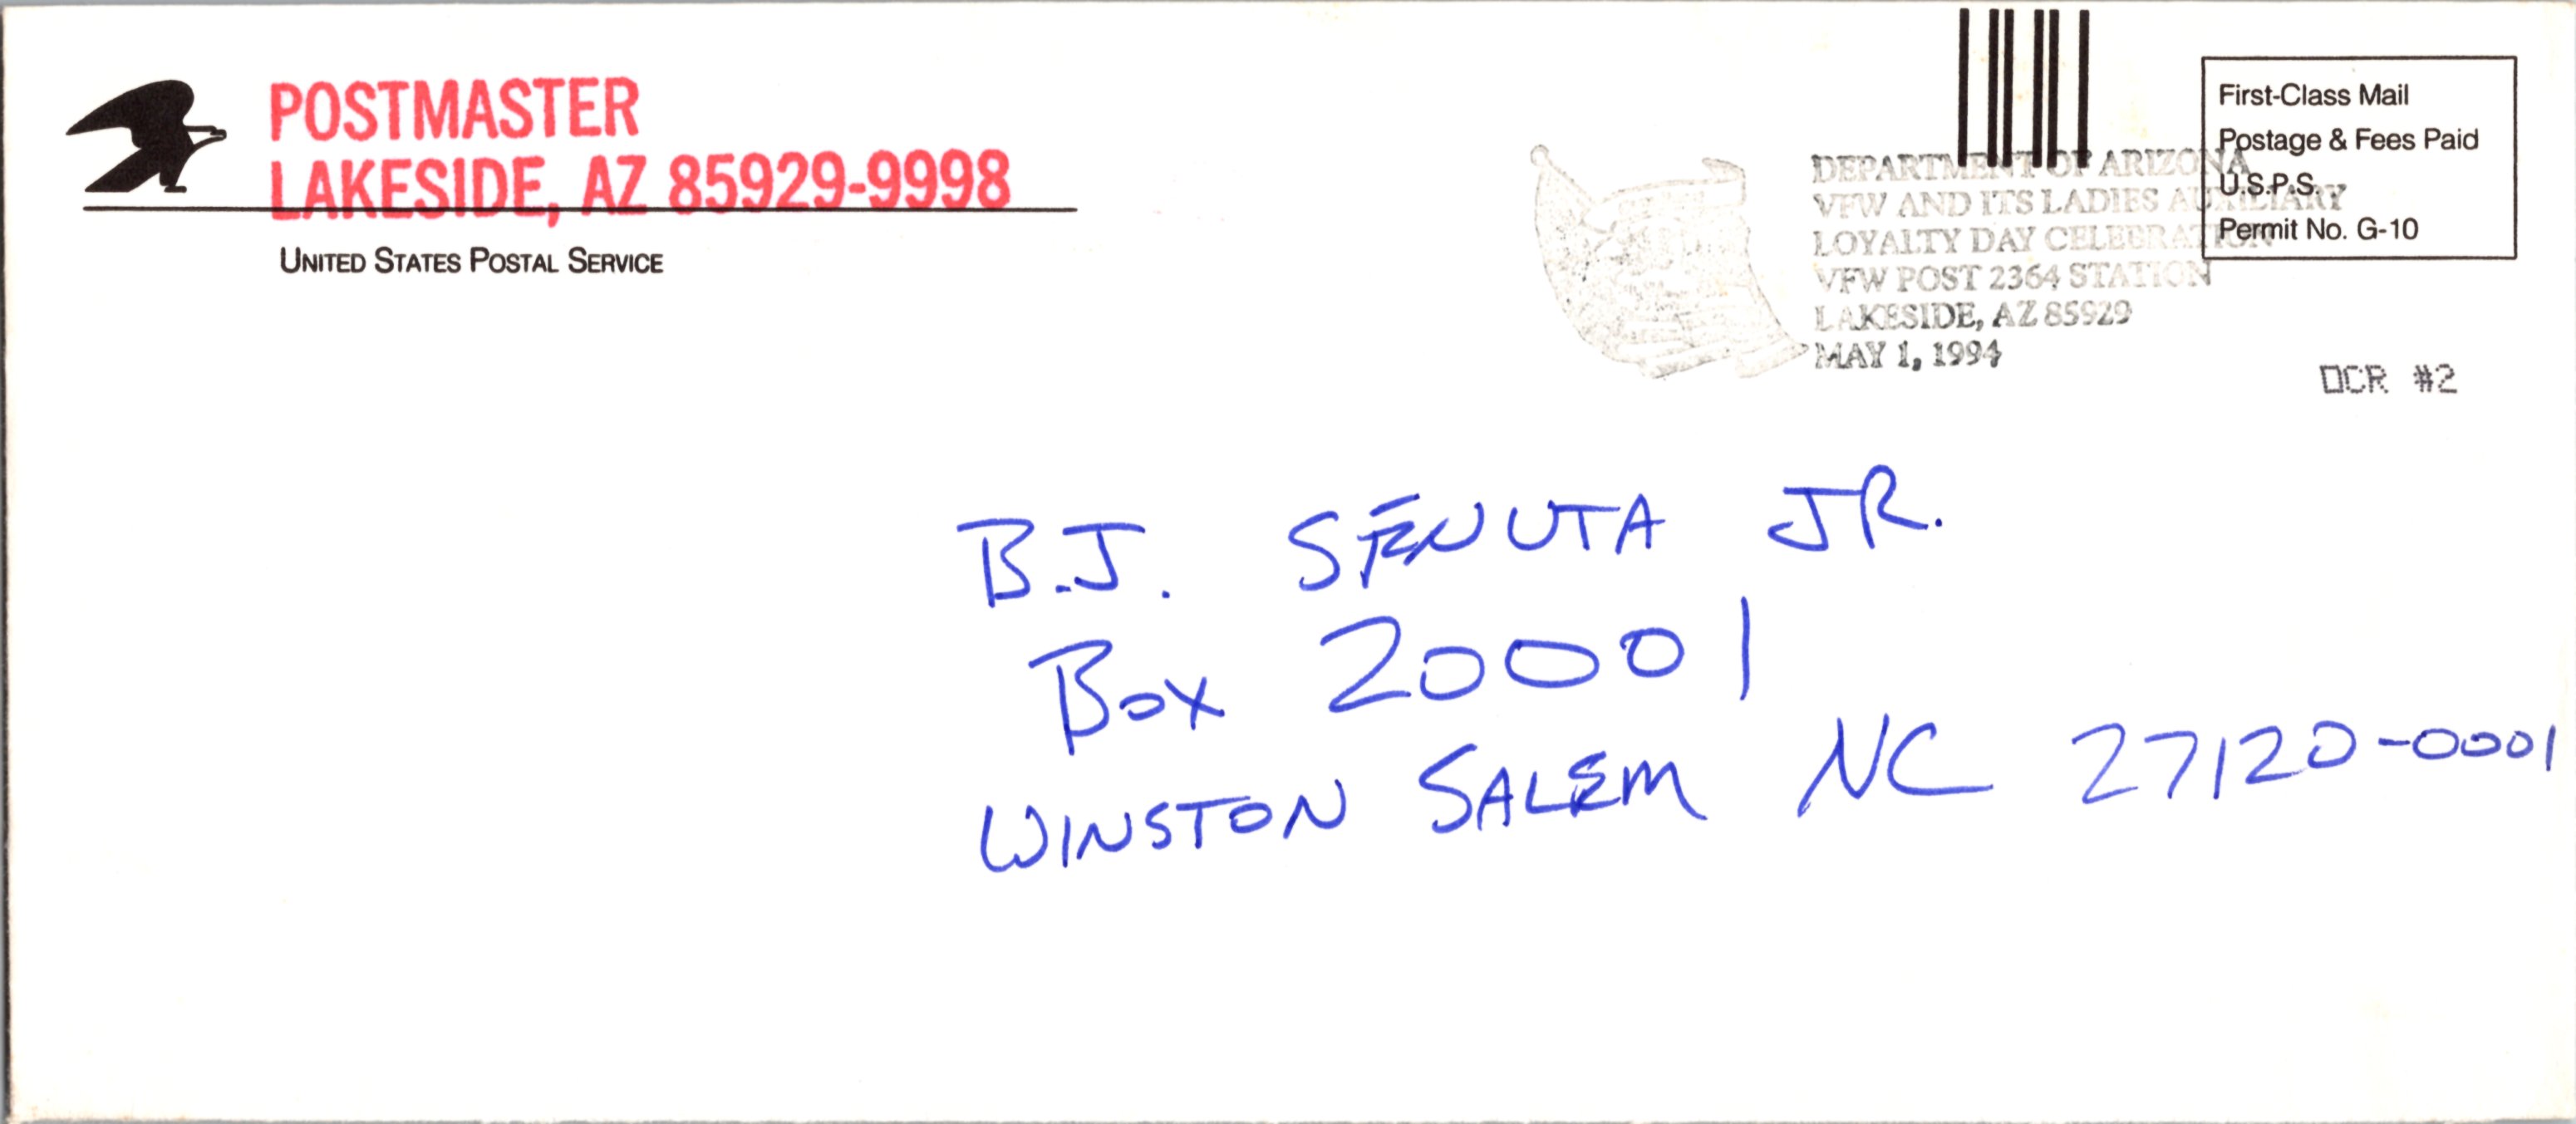 POSTMASTER
LAKESIDE, AZ 85929-9998
UNITED STATES POSTAL SERVICE
DEPARTMENT OF ARIZONA
VFW AND ITS LADIES AUXILIARY
LOYALTY DAY CELEBRATION
VFW POST 2364 STATION
LAKESIDE, AZ 85929
MAY 1, 1994
First-Class Mail
Postage & Fees Paid
U.S.P.S.
Permit No. G-10
OCR #2
B.J. SENUTA JR.
BOX 20001
WINSTON SALEM NC 27120-0001